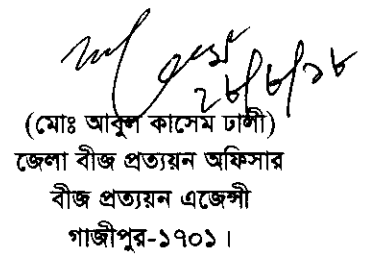 ২৮/৮/১৮
(মোঃ আবুল কাসেম ঢালী)
জেলা বীজ প্রত্যয়ন অফিসার
বীজ প্রত্যয়ন এজেন্সী
গাজীপুর-১৭০১।